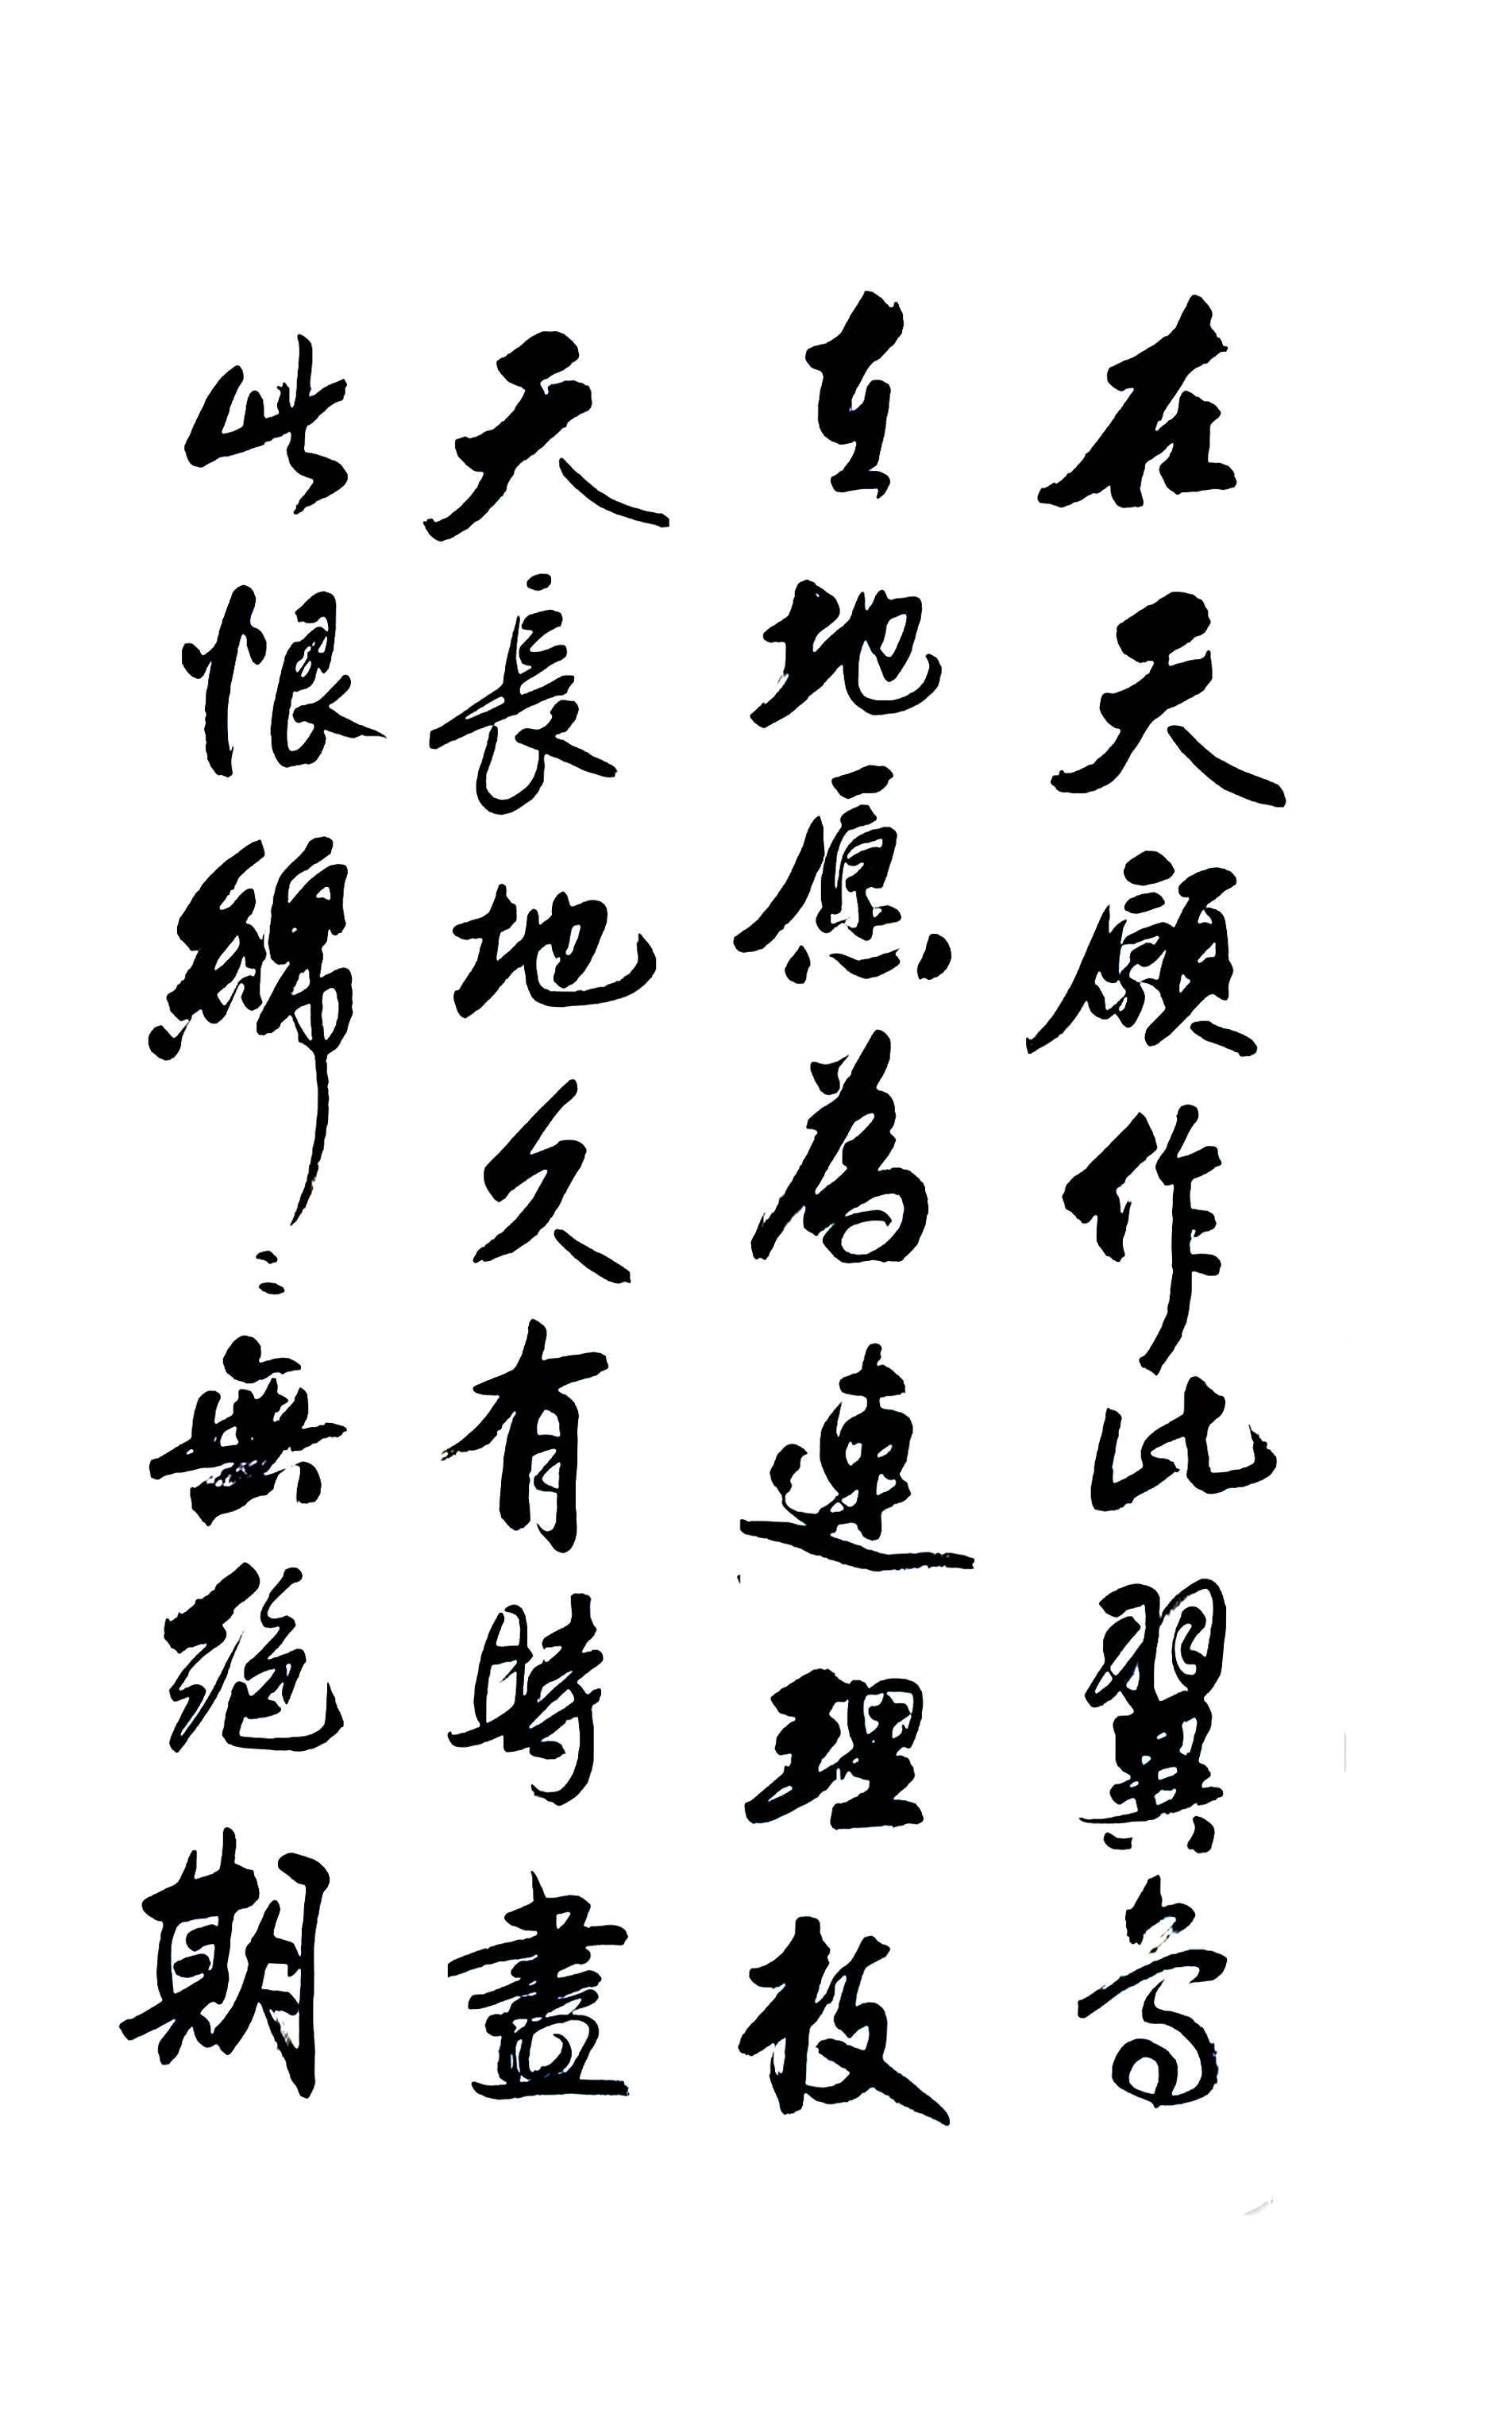 在天願作比翼鳥
在地愿為連理枝
天長地久有時盡
此恨綿〻無絕期